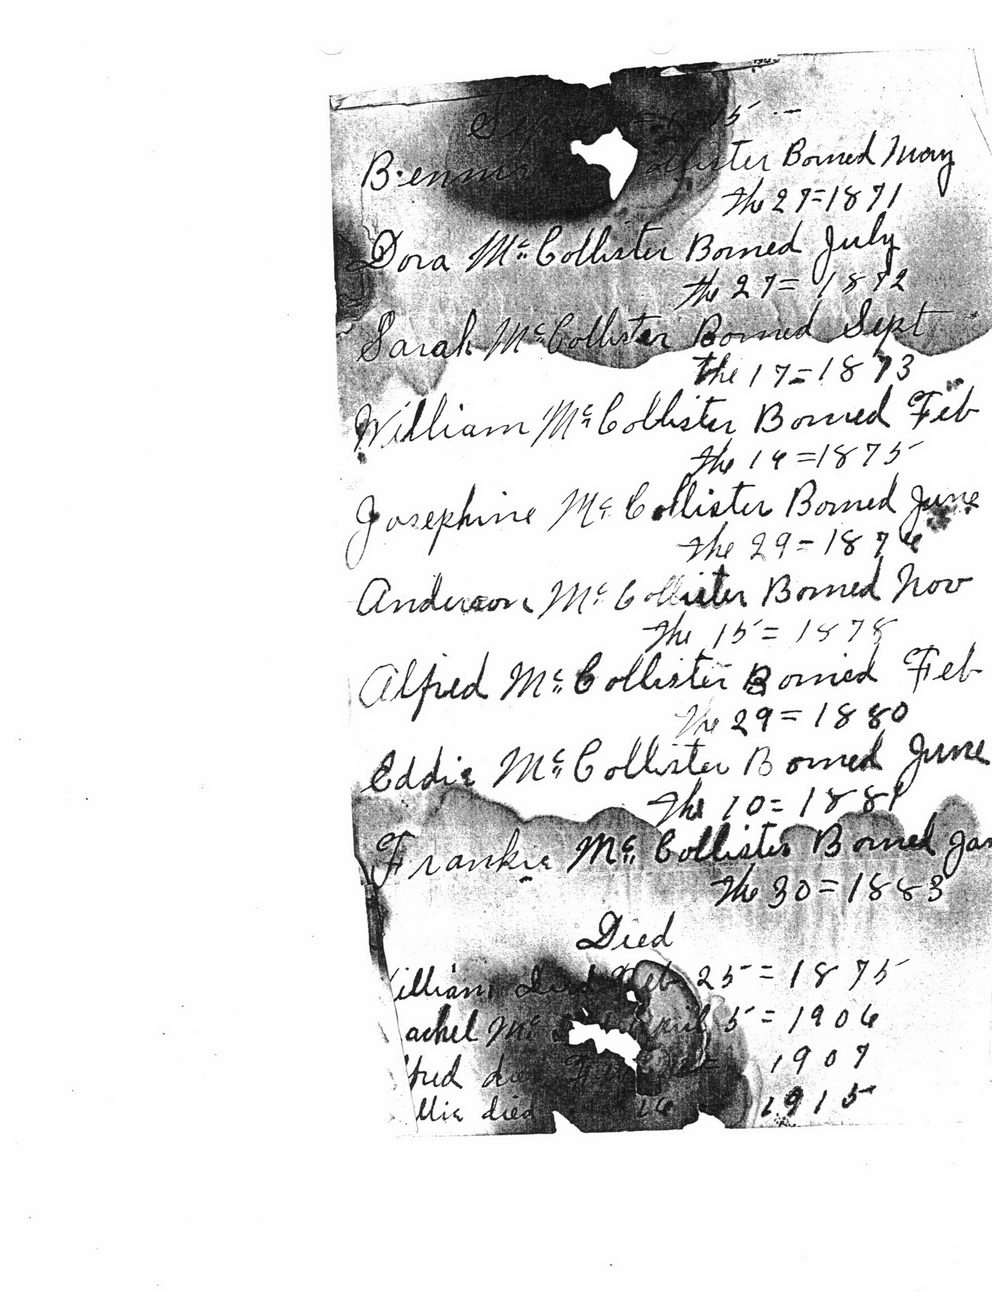 Sep 5 --
Bennis ollister Borned May
the 27=1871
Dora Mc Collister Borned July
the 27= 1872
Sarah Mc Collister Borned Sept
the 17=1873
William Mc Collister Borned Feb
the 14=1875
Josephine Mc Collister Borned June
the 29=1876
Anderson Mc Collister Borned Nov
the 15=1878
Alfred Mc Collister Borned Feb
the 29=1880
Eddie Mc Collister Borned June
the 10=1881
Frankie Mc Collister Borned Jan
the 30=1883
Died
illiam died Feb 25=1875
achel Mc April 5=1906
fred died 1907
llie died 16 1915